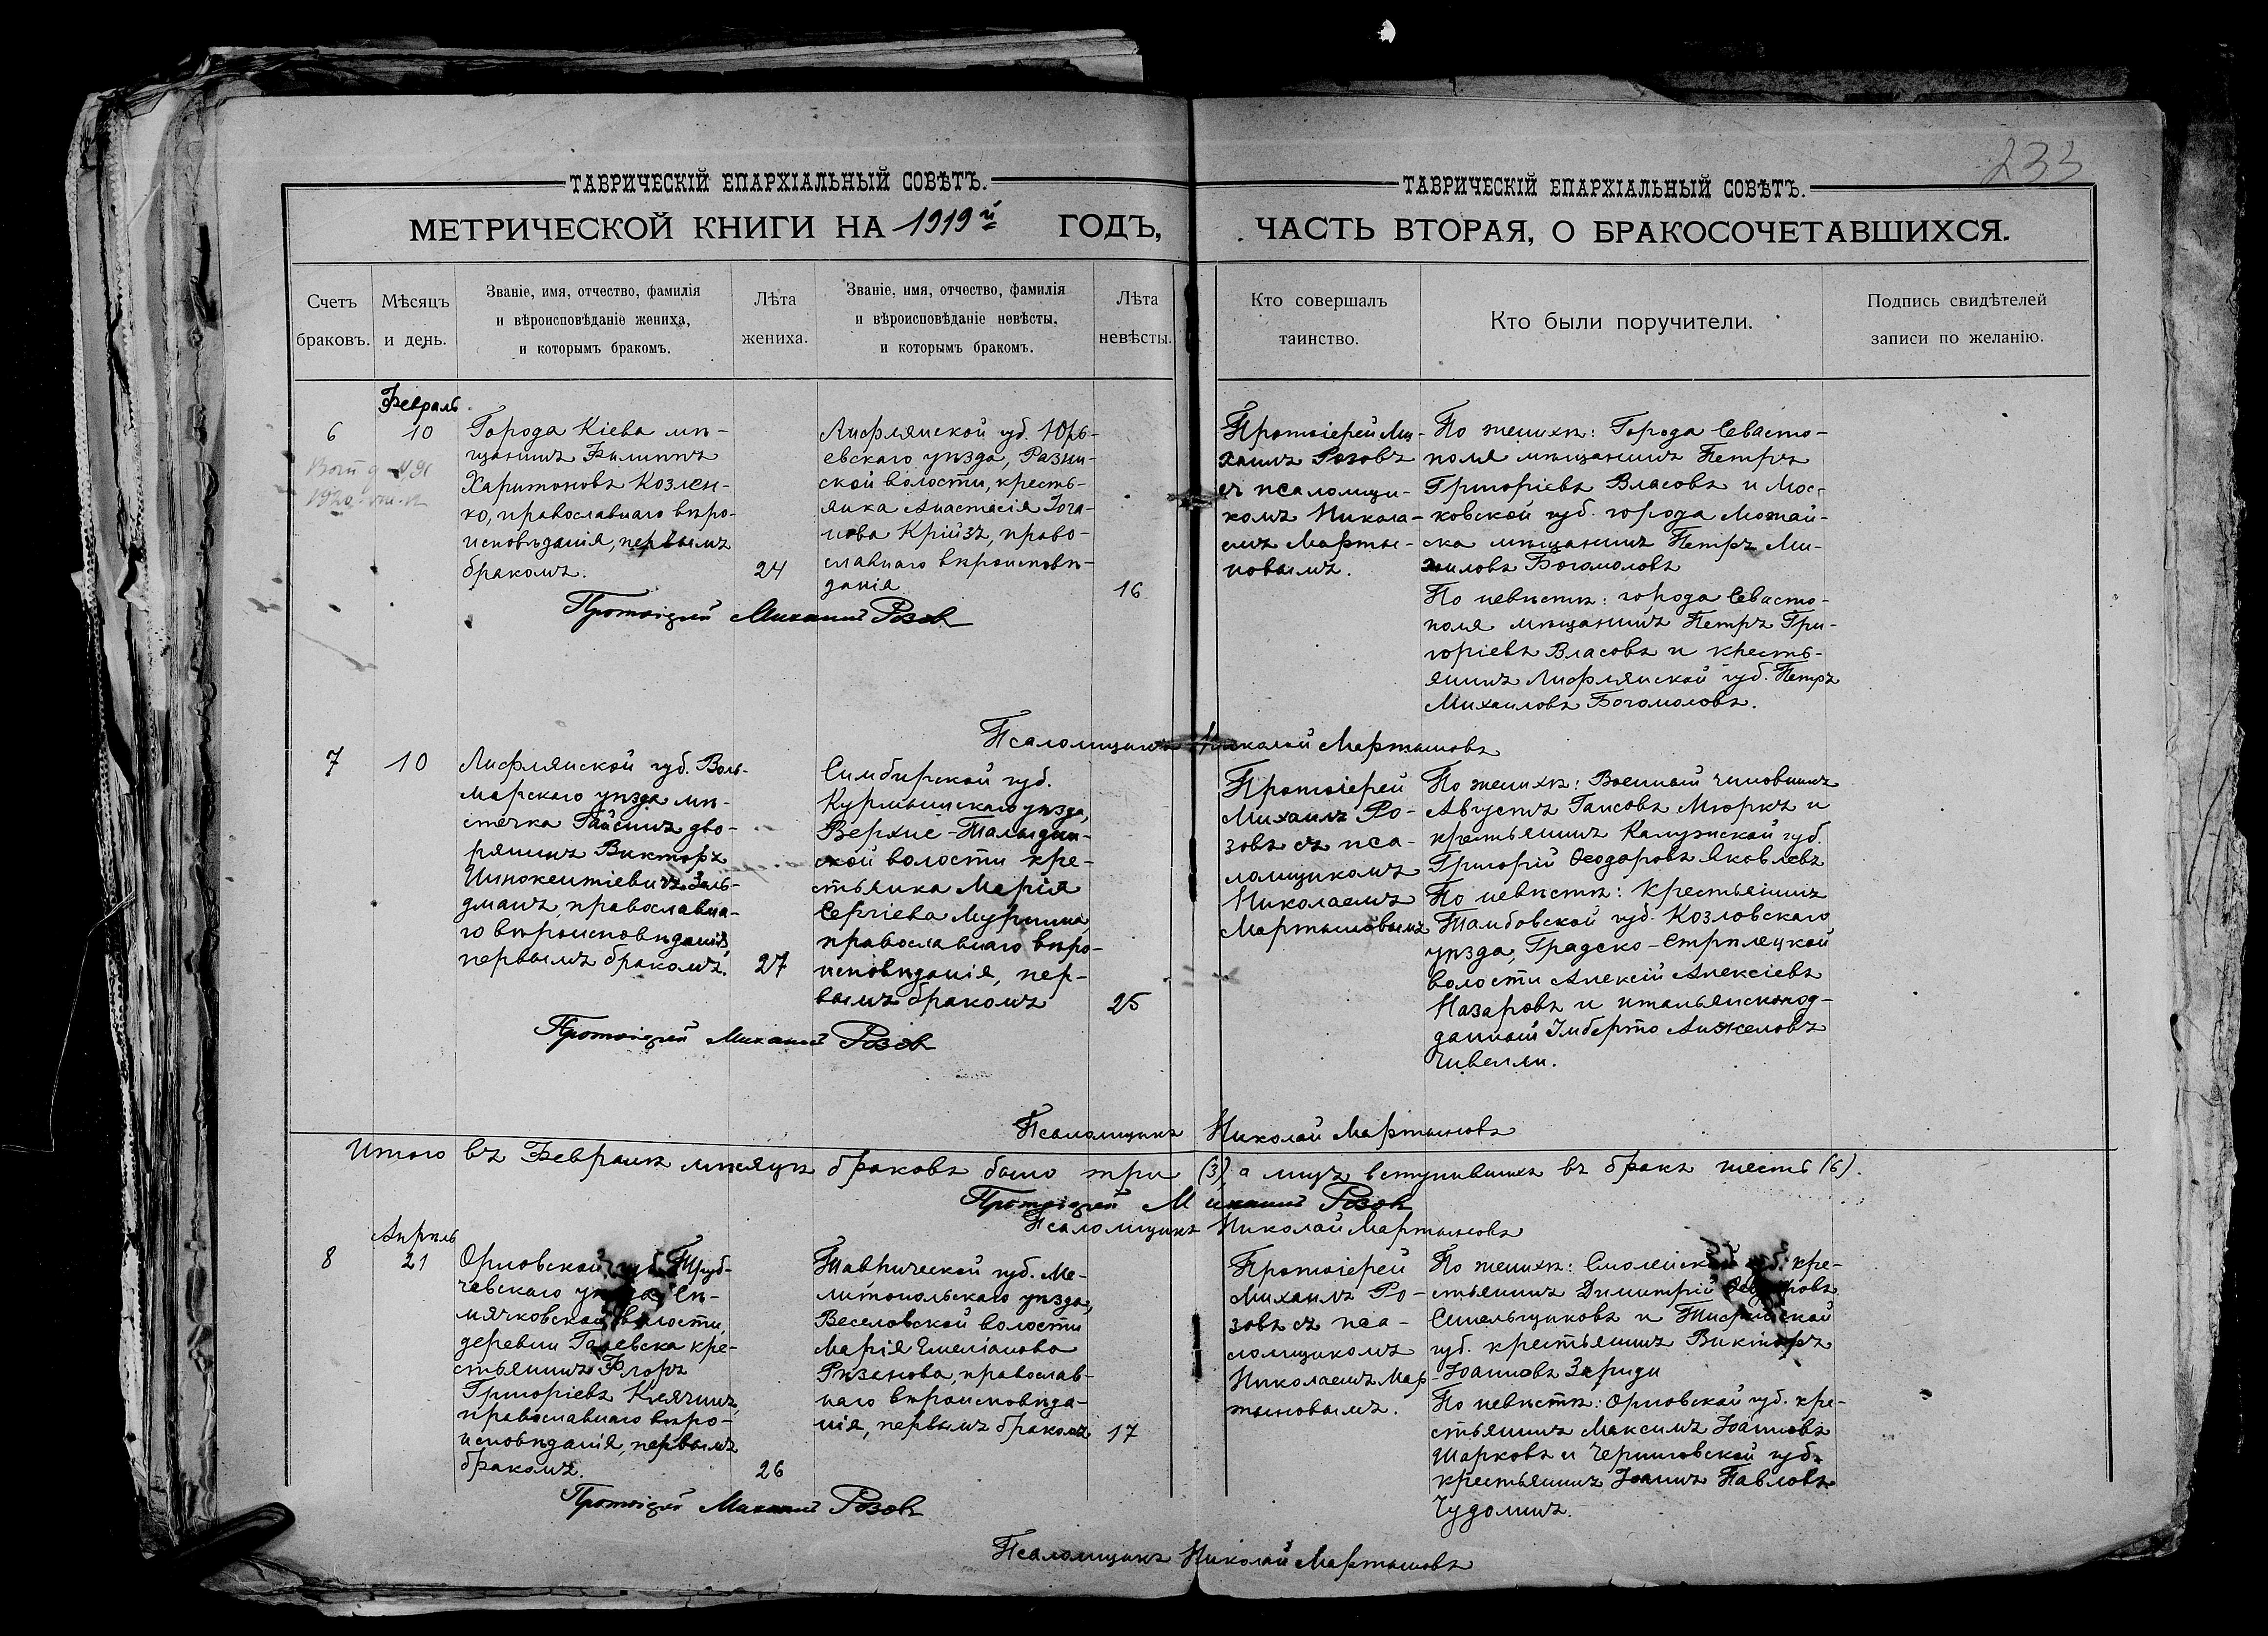 233
ТАВРИЧЕСКІЙ ЕПАРХІАЛЬНЫЙ СОВѢТЪ.
МЕТРИЧЕСКОЙ КНИГИ НА 1919й ГОДЪ,
ТАВРИЧЕСКІЙ ЕПАРХІАЛЬНЫЙ СОВѢТЪ.
ЧАСТЬ ВТОРАЯ, О БРАКОСОЧЕТАВШИХСЯ.
Счетъ
браковъ.
Мѣсяцъ
и день.
Званіе, имя, отчество, фамилія
и вѣроисповѣданіе жениха,
и которымъ бракомъ.
Лѣта
жениха.
Званіе, имя, отчество, фамилія
и вѣроисповѣданіе невѣсты,
и которымъ бракомъ.
Лѣта
невѣсты.
Кто совершалъ
таинство.
Кто были поручители.
Подпись свидѣтелей
записи по желанію.
Февраль
6
10
Города Кіева мѣ-
щанинъ Филиппъ
Харитоновъ Козлен-
ко, православнаго вѣро-
исповѣданія, первымъ
бракомъ.
24
Лифляндской уб. Юрь-
евскаго уѣзда,
ской волости, кресть-
янка Анастасія Іога-
нова Крійзъ, право-
славнаго вѣроисповѣ-
данія
16
Протоіерей Ми-
хаилъ Розовъ
съ псаломщи-
комъ Никола-
емъ Марты-
новымъ.
По женихѣ: Города Севасто-
поля мѣщанинъ Петръ
Григоріевъ Власовъ и Мос-
ковской губ. города Можай-
ска мѣщанинъ Петръ Ми-
хиловъ Богомоловъ
По невѣстѣ: города Севасто-
поля мѣщанинъ Петръ Гри-
горіевъ Власовъ и кресть-
янинъ Лифлянской губ. Петръ
Михаиловъ Богомоловъ.
Протоіерей Михаилъ Розовъ
Псаломщикъ Николай Мартыновъ
7
10
Лифлянской губ. Воль-
марскаго уѣзда мѣ-
стечка Гайсинъ дво-
рянинъ Викторъ
Иннокентіевичъ Зель-
дманъ, православна-
го вѣроисповѣданія,
первымъ бракомъ.
27
Симбирской губ.
Курмышскаго уѣзда,
Верхне-Талыдин-
ской волости кре-
стьянка Марія
Сергіева Муршина,
православнаго вѣро-
исповѣданія, пер-
вымъ бракомъ
25
Протоіерей
Михаилъ Ро-
зовъ съ пса-
ломщикомъ
Николаемъ
Мартыновымъ
По женихѣ: Военный чиновникъ
Августъ Гансовъ Мюркъ и
крестьянинъ Калужской губ.
Григорій Ѳеодоровъ Яковлевъ
По невѣстѣ: Крестьянинъ
Тамбовской губ. Козловскаго
уѣзда, Градско-Стрѣлецкой
волости Алексій Алексіевъ
Назаровъ и итальянскопод-
данный Имберто Анжеловъ
Чивелли.
Протоіерей Михаилъ Розовъ
Псаломщикъ Николай Мартыновъ
Итого въ Февралѣ мѣсяцѣ браковъ было три (3), а лицъ вступившихъ въ бракъ шесть (6).
Протоіерей Михаилъ Розовъ
Псаломщикъ Николай Мартыновъ
Апрѣль
8
21
Орловской губ. Труб-
чевскаго уѣзда Сѣ-
мячковской волости,
деревни кре-
стьянинъ Флоръ
Григоріевъ Клячинъ,
православнаго вѣро-
исповѣданія, первымъ
бракомъ.
26
Таврической губ. Ме-
литопольскаго уѣзда,
Веселовской волости
Марія Емеліанова
Рѣзанова, православ-
наго вѣроисповѣда-
нія, первымъ бракомъ
17
Протоіерей
Михаилъ Ро-
зовъ съ пса-
ломщикомъ
Николаемъ Мар-
тыновымъ.
По женихѣ: Смоленской губ. кре-
стьянинъ Димитрій Ѳедоровъ
Синельщиковъ и Тифлисской
губ. крестьянинъ Викторъ
Іоанновъ Зариди
По невѣстѣ: Орловской губ. кре-
стьянинъ Максимъ Іоанновъ
Шарковъ и Черниговской губ.
крестьянинъ Іоаннъ Павловъ
Чудолинъ.
Протоіерей Михаилъ Розовъ
Псаломщикъ Николай Мартыновъ